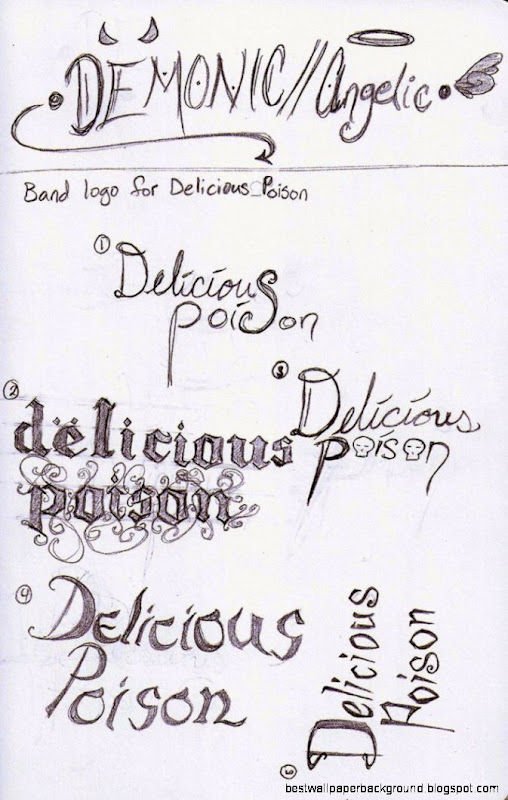 DEMONIC//Angelic
Band logo for Delicious_Poison
1
Delicious
poison
2
dëlicious
poison
3
Delicious
poison
4
Delicious
Poison
5
Delicious
Poison
bestwallpaperbackground.blogspot.com